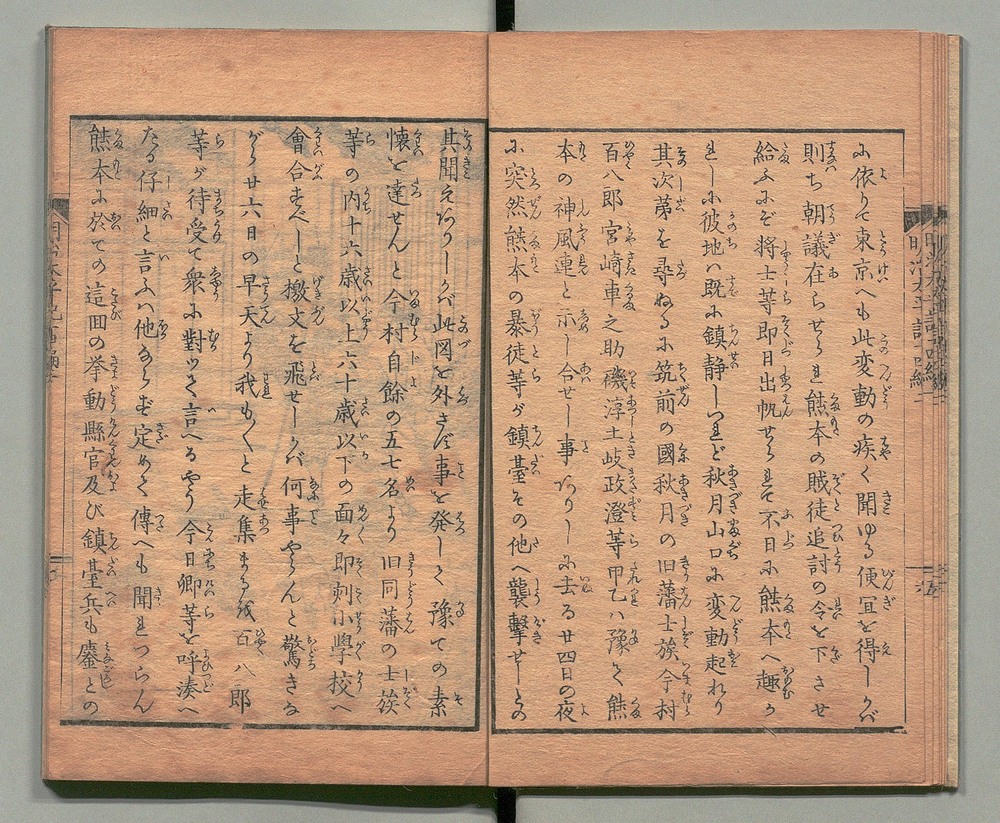 に依りて東京へも此変動の疾く聞ゆる便宜を得しかバ
則ち朝議在らせられ熊本の賊徒追討の令を下させ
給ふにぞ将士等即日出帆せられて不日に熊本へ趣か
れしに彼地ハ既に鎮静しつれど秋月山口に変動起れり
其次第を尋ぬるに筑前の國秋月の旧藩士族今村
百八郎宮﨑車之助磯淳土岐政澄等甲乙ハ豫て熊
本の神風連と示し合せし事ありしに去る廿四日の夜
に突然熊本の暴徒等が鎮臺その他へ襲撃せしとの
其聞えありしかバ此図を外さず事を発して豫ての素
懐を達せんと今村自餘の五七名より旧同藩の士族
等の内十六歳以上六十歳以下の面々即刻小學校へ
會合すべしと檄文を飛せしかバ何事やらんと驚きな
がら廿六日の早天より我も〱と走集まるを百八郎
等が待受て衆に對ッて言へるやう今日卿等を呼湊へ
たる仔細と言ふハ他ならず定めて傳へも聞れつらん
熊本に於ての這回の挙動縣官及び鎮臺兵も鏖との
明治太平記二編二